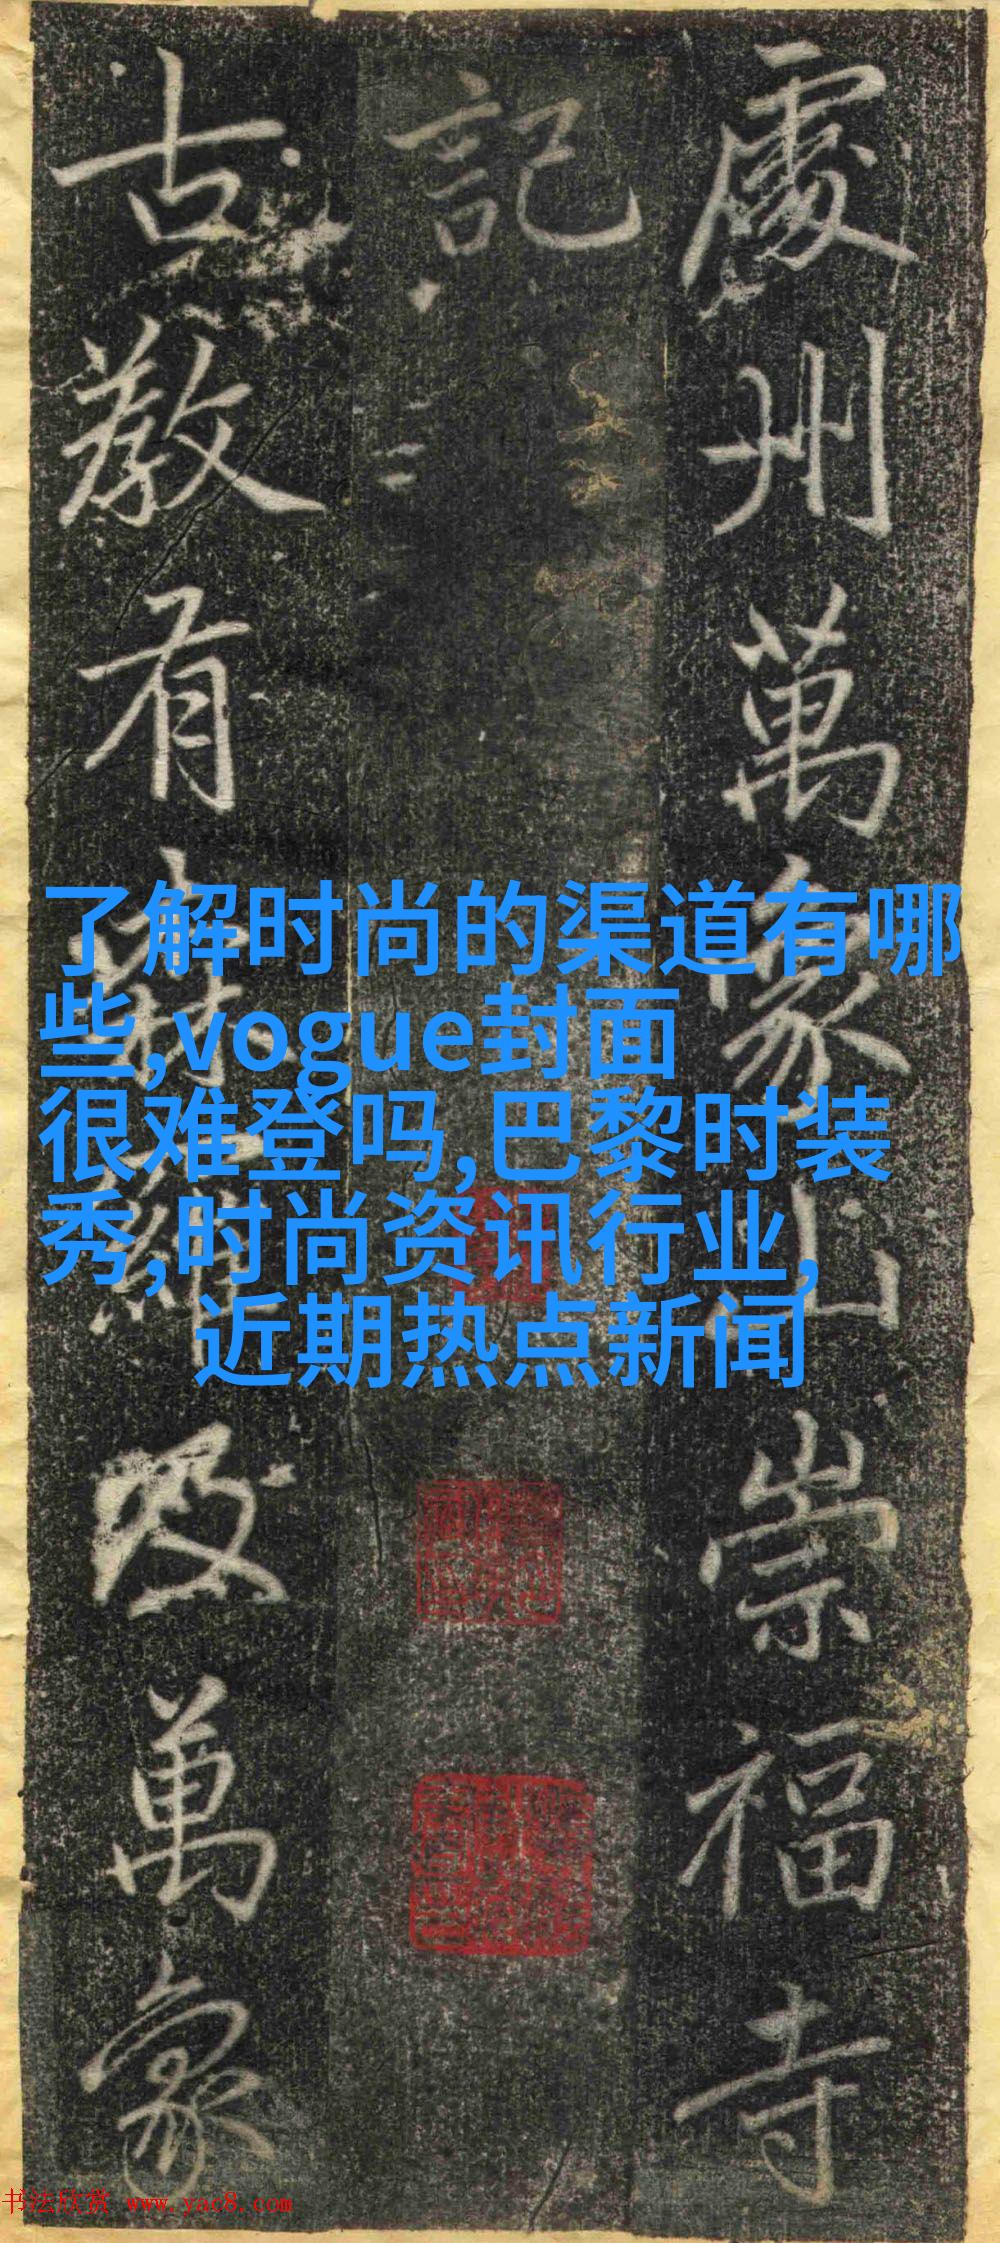 處州萬象山崇福寺
記
古教有
及萬象
了解时尚的渠道有哪
些,vogue封面
很难登吗,巴黎时装
秀,时尚资讯行业,
近期热点新闻
书法欣赏 www.yac8.com